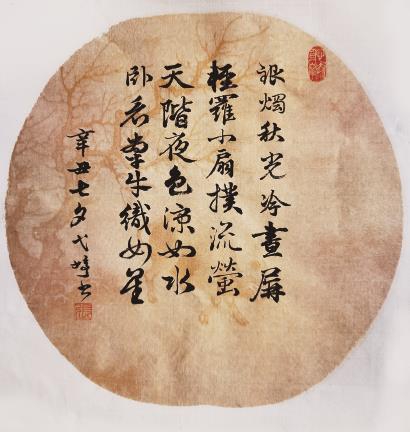 銀燭秋光冷畫屏
輕羅小扇撲流螢
天階夜色涼如水
卧看牽牛織女星
辛丑七夕